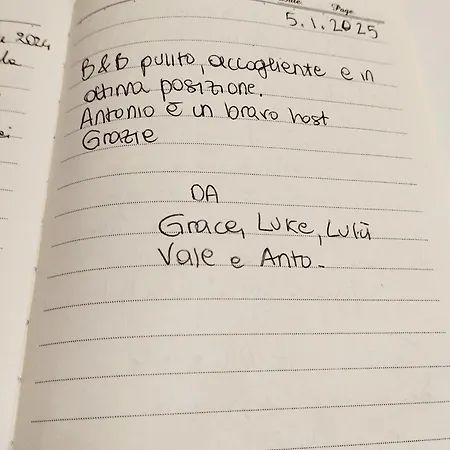 Page
5.1.2025
e 2024
B&B pulito, accogliente e in
ottima posizione.
Antonio è un bravo host
Grazie
DA
Grace, Luke, Lulù
Vale e Anto.